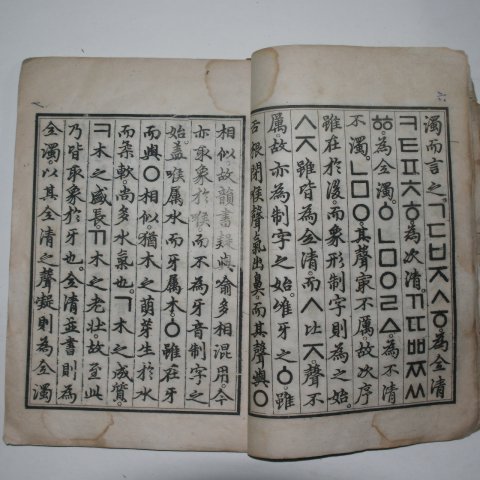 濁而言之。ㄱㄷㅂㅈㅅㆆ。為全清
ㅋㅌㅍㅊㅎ。為次清。ㄲㄸㅃㅉㅆ
ㆅ。為全濁。ㆁㄴㅁㅇㄹㅿ。為不清
不濁。ㄴㅁㅇ。其聲㝡不厲。故次序
雖在於後。而象形制字則為之始
ㅅㅈ雖皆為全清。而ㅅ比ㅈ。聲不
厲。故亦為制字之始。唯牙之ㆁ。雖
舌根閉喉聲氣出鼻。而其聲與ㅇ
相似。故韻書疑與喻多相混用。今
亦取象於喉。而不為牙音制字之
始。盖喉屬水而牙屬木。ㆁ雖在牙
而與ㅇ相似。猶木之萌芽生於水
而柔軟。尚多水氣也。ㄱ木之成質。
ㅋ木之盛長。ㄲ木之老壯。故至此
乃皆取象於牙也。全清並書則為
全濁。以其全清之聲凝則為全濁